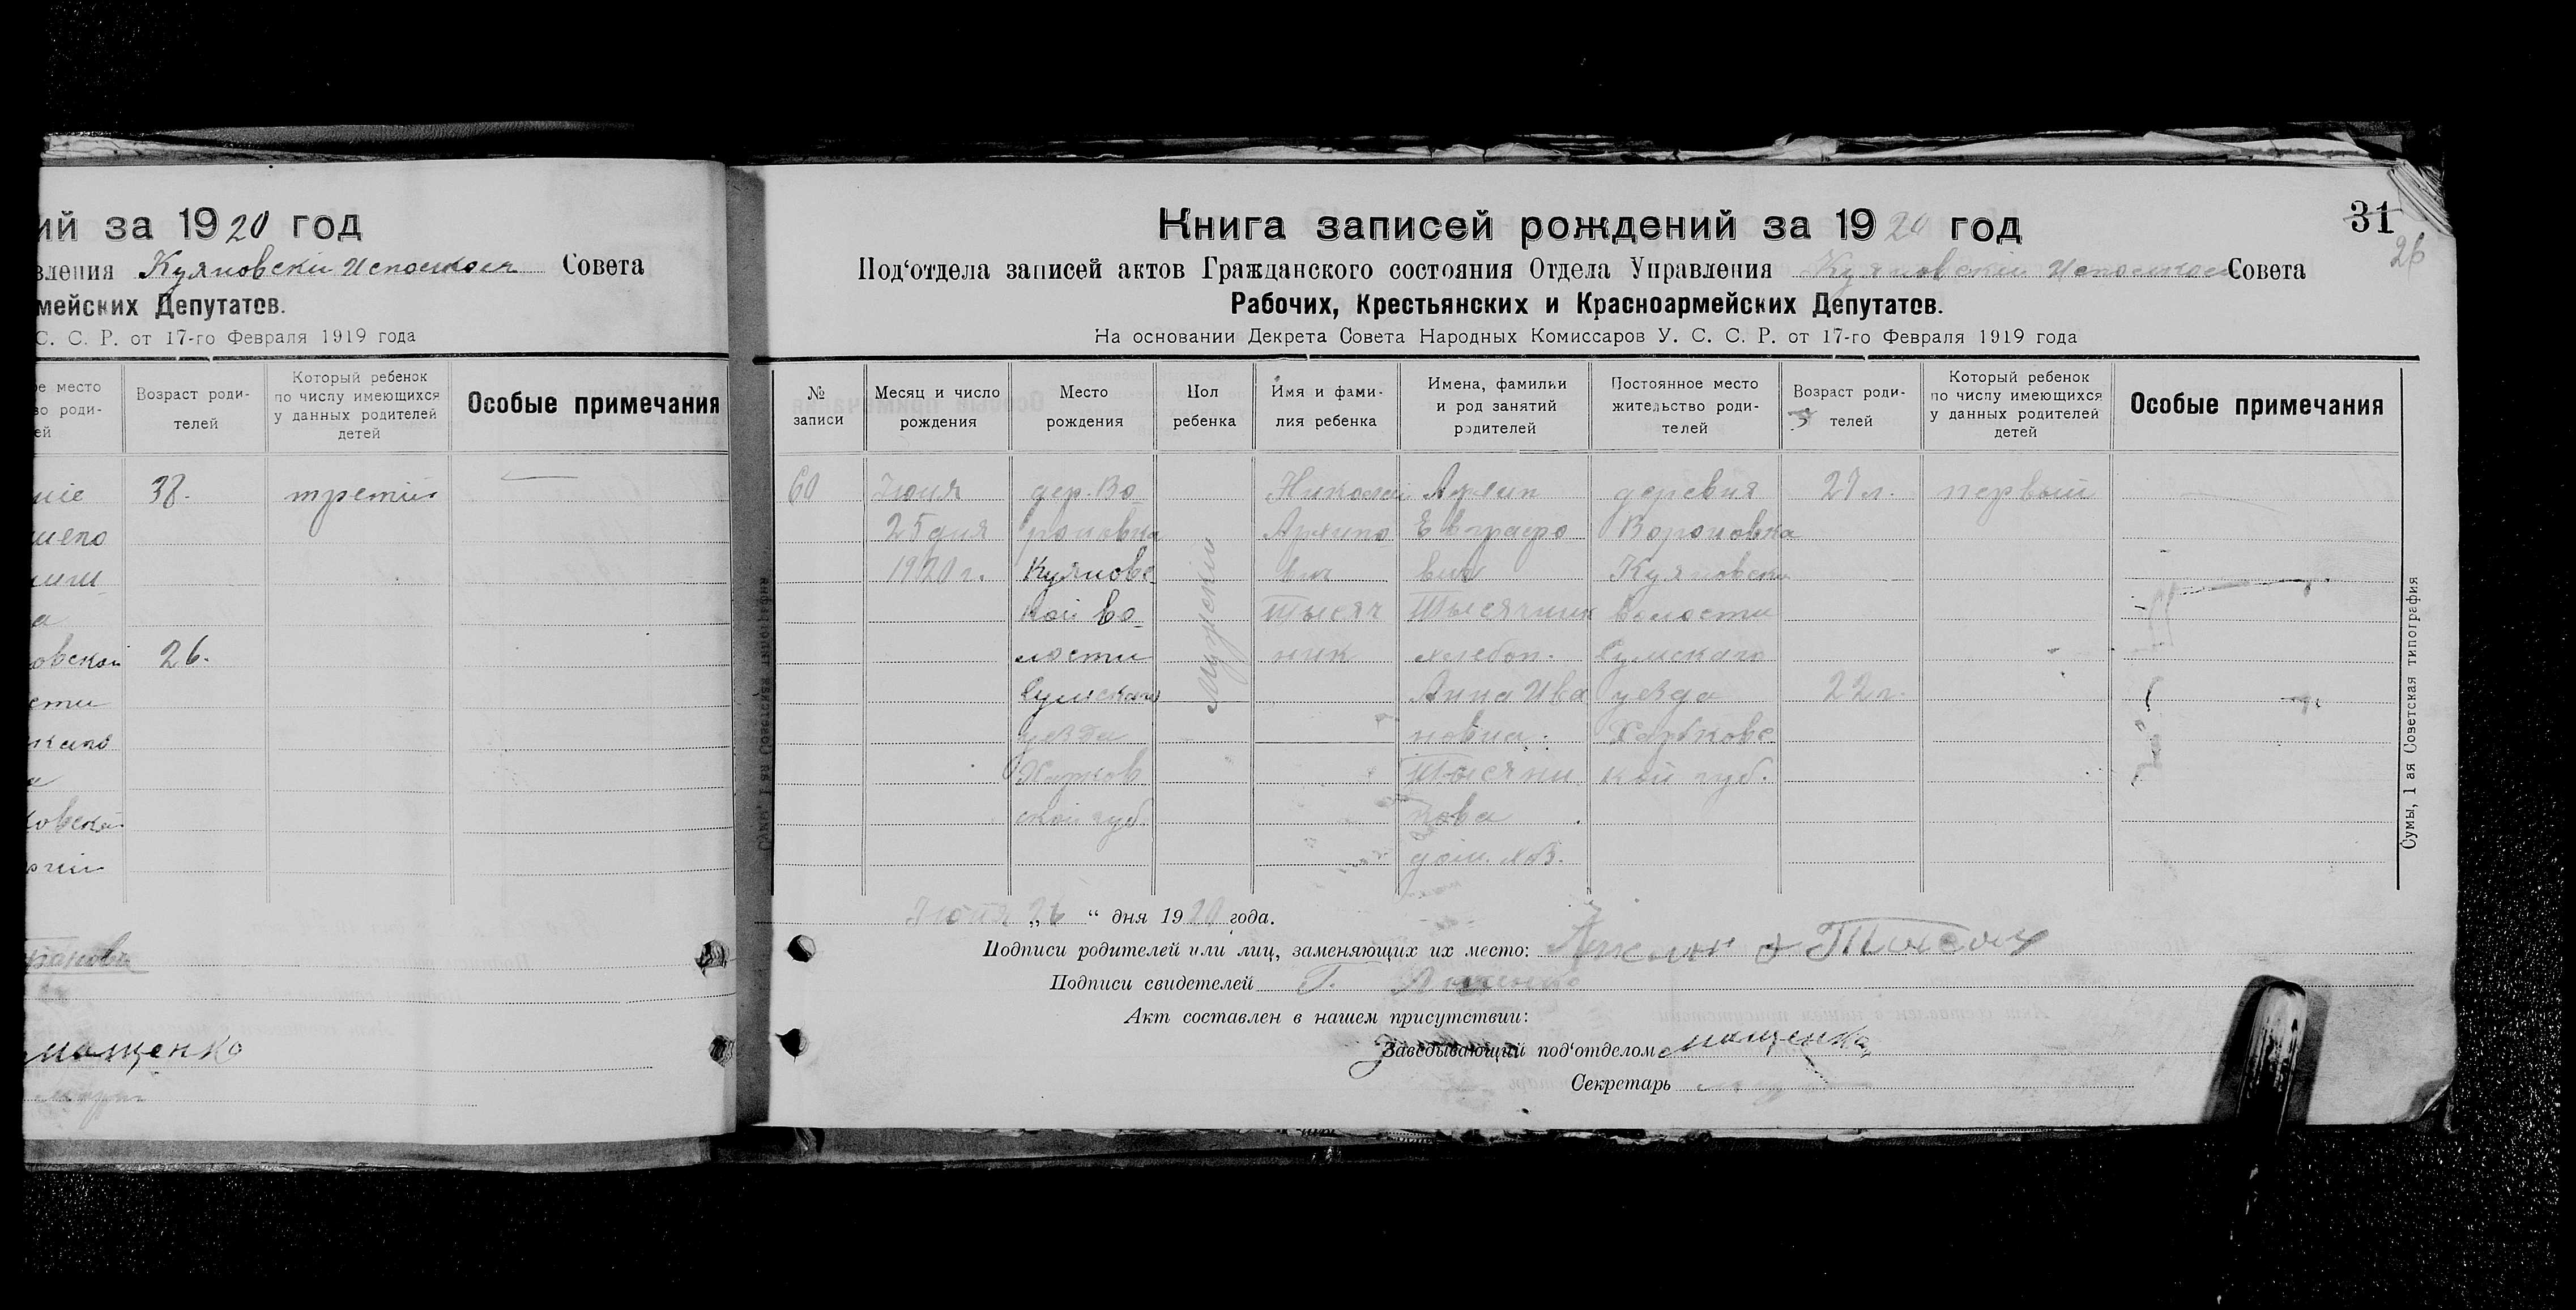 ий за 1920 год
вления Куяновскій Исполком Совета
мейских Депутатов.
С. С. Р. от 17-го Февраля 1919 года
ое место
во роди-
ей
Возраст роди-
телей
Который ребенок
по числу имеющихся
у данных родителей
детей
Особые примечания
38.
третій
овской
26.
сти
ковской
Мащенко
Книга записей рождений за 1920 год
31
26
Под‘отдела записей актов Гражданского состояния Отдела Управления Куяновскій Исполком Совета
Рабочих, Крестьянских и Красноармейских Депутатов.
На основании Декрета Совета Народных Комиссаров У. С. С. Р. от 17-го Февраля 1919 года
№
записи
Месяц и число
рождения
Место
рождения
Пол
ребенка
Имя и фами-
лия ребенка
Имена, фамилии
и род занятий
родителей
Постоянное место
жительство роди-
телей
Возраст роди-
телей
Который ребенок
по числу имеющихся
у данных родителей
детей
Особые примечания
60
Іюня
25 дня
1920 г.
дер. Во
роновка
Куяновс
кой Во-
лости
Сумскаго
уезда
Харков
ской губ
Мужской
Николай
Архипо
вич
Тысяч
ник
Архип
Евграфо
вич
Тысячник
хлебоп.
Анна Ива
новна
Тысячни
кова
дом. хоз.
деревня
Вороновка
Куяновской
волости
Сумскаго
уезда
Харковс
кой губ.
27 л.
22 г.
первый
Іюня „26“ дня 1920 года.
Подписи родителей или лиц, заменяющих их место:
Подписи свидетелей
Акт составлен в нашем присутствии:
Заведывающий под‘отделом Мащенко
Секретарь
Сумы, 1 ая Советская типография